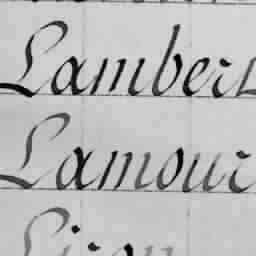 Lambert
Lamour